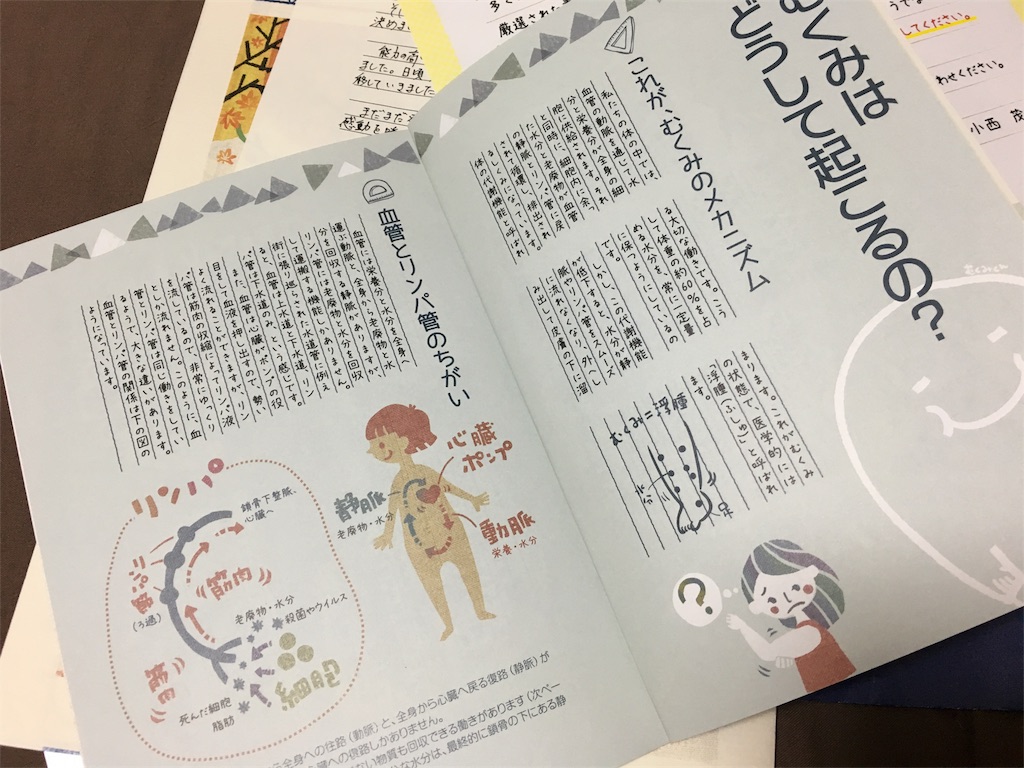 むくみは
どうして起こるの?
むくみくん
これが、むくみのメカニズム
私たちの体の中では、
血管の動脈を通して水
分と栄養分が全身の細
胞に供給されます。それ
と同時に、細胞内に余っ
た水分と老廃物が血管
の静脈とリンパ管に戻
されて循環し、排出され
るしくみになっています。
体の代謝機能と呼ばれ
る大切な働きです。こう
して体重の約60%を占
める水分を、常に一定量
に保つようにしているの
です。
しかし、この代謝機能
が低下すると、水分が静
脈やリンパ管をスムーズ
に流れなくなり、外へし
み出して皮膚の下に溜
まります。これがむくみ
の状態で、医学的には
「浮腫(ふしゅ)」と呼ばれ
ます。
むくみ=浮腫
足
?
血管とリンパ管のちがい
血管は栄養分と水分を全身へ
運ぶ動脈と、全身から老廃物と水
分を回収する静脈がありますが、
リンパ管には老廃物と水分を回収
して運搬する機能しかありません。
街に張り巡らされた水道管に例え
ると、血管は上水道と下水道、リン
パ管は下水道のみ、という感じです。
また、血管は心臓がポンプの役
目をして血液を押し出すので、勢い
よく流れることができますが、リン
パ管は筋肉の収縮によってリンパ液
を流しているので、非常にゆっくり
としか流れません。このように、血
管とリンパ管は同じ働きをしてい
るようで、大きな違いがあります。
血管とリンパ管の関係は下の図の
ようになっています。
心臓
ポンプ
静脈
老廃物・水分
動脈
栄養・水分
リンパ
鎖骨下静脈、
心臓へ
リンパ節
(ろ過)
筋肉
筋肉
老廃物・水分
殺菌やウイルス
細胞
死んだ細胞
脂肪
全身への往路(動脈)と、全身から心臓へ戻る復路(静脈)が
心臓への復路しかありません。
ない物質も回収できる働きがあります(次ペー
な水分は、最終的に鎖骨の下にある静
決めま
能力の高
ました。日頃
移していきました
まだまだ
感動を
多く
厳選された
してください。
わせください。
小西 茂